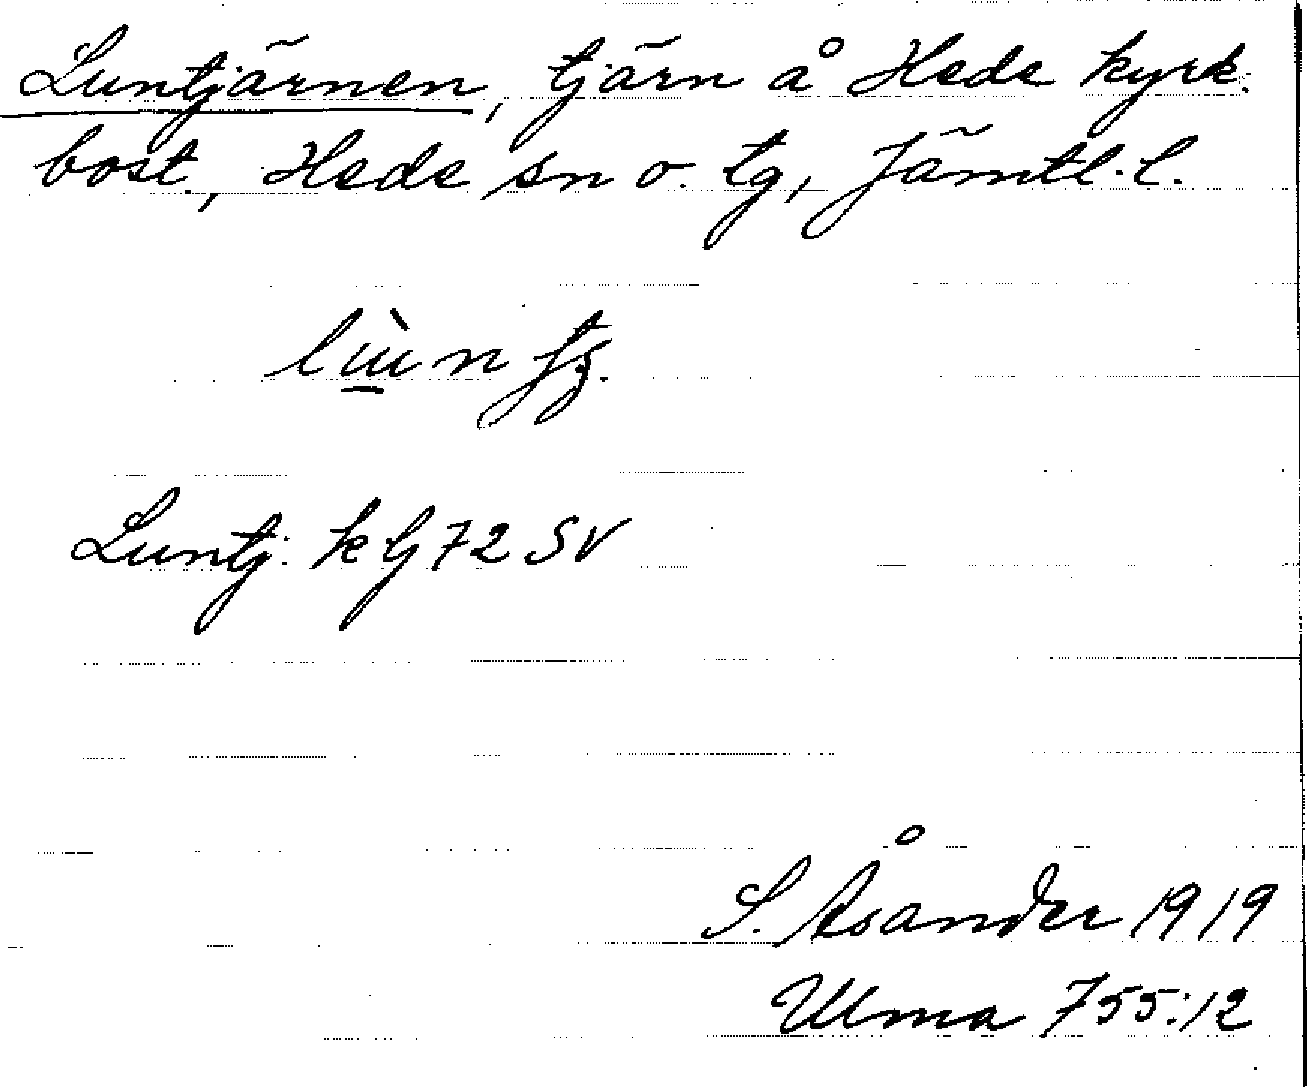 Luntjärnen, tjärn å Hede kyrk-
bost., Hede sn o. tg, Jämtl. l.
Luntj. kbj 72 SV
S. Åsander 1919
Ulma 755:12